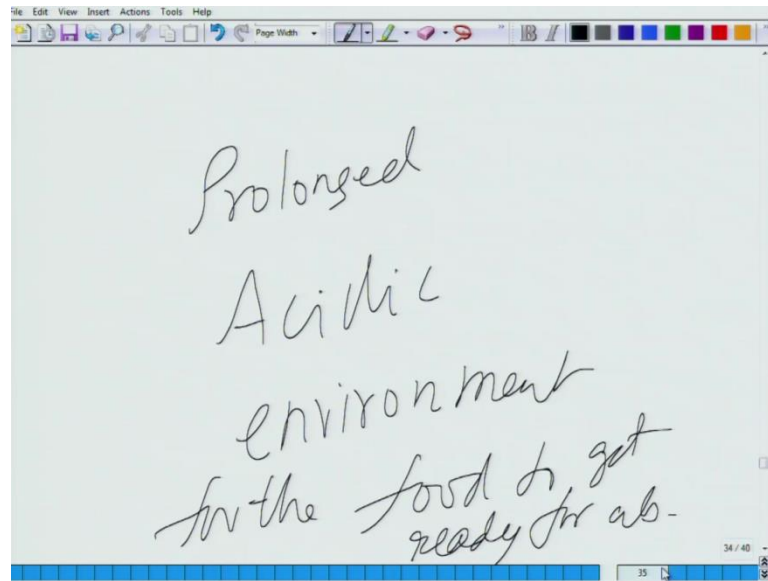 File Edit View Insert Actions Tools Help
Page Width
B I
Prolonged
Acidic
environment
for the food to get
ready for ab-
34 / 40
35